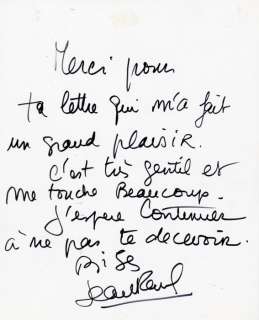 Merci pour
ta lettre qui m'a fait
un grand plaisir.
c'est très gentil et
me touche Beaucoup.
J'espere Continuer
à ne pas te decevoir.
BiSes